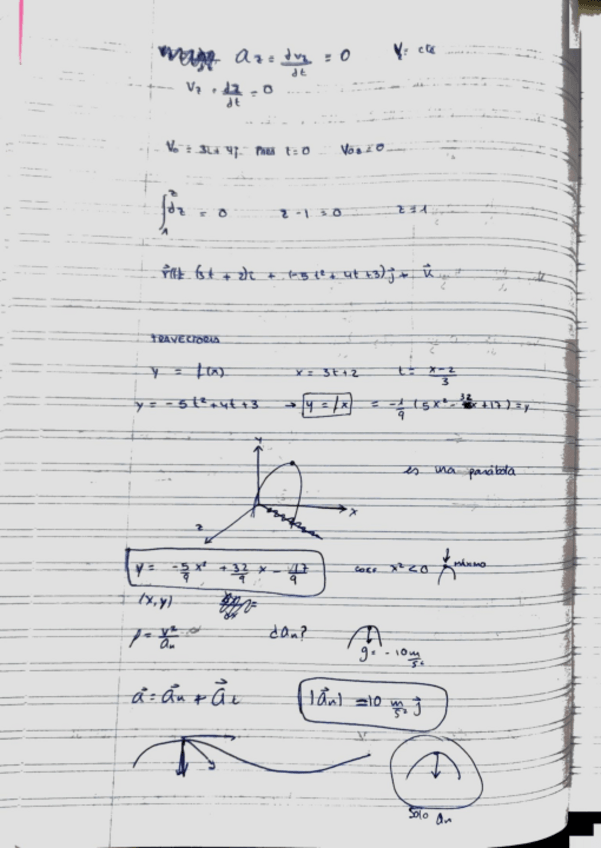 a_z = dv_z/dt = 0   V = cte
V_z = dz/dt = 0
V_0 = 3i + 4j PARA t=0   V_0z = 0
∫_1^z dz = 0   z - 1 = 0   z = 1
r(t) (3t + 2)i + (-5t² + 4t + 3)j + k
TRAYECTORIA
y = f(x)   x = 3t+2   t = x-2/3
y = -5t² + 4t + 3 → y = f(x) = -1/9 (5x² - 32x + 17) = y
y
es una parábola
x
z
y = -5/9 x² + 32/9 x - 17/9   como x² < 0   máximo
(x,y)
ρ = v²/a_n   ¿a_n?   g = -10 m/s²
a = a_n + a_t   |a_n| = 10 m/s² j
solo a_n